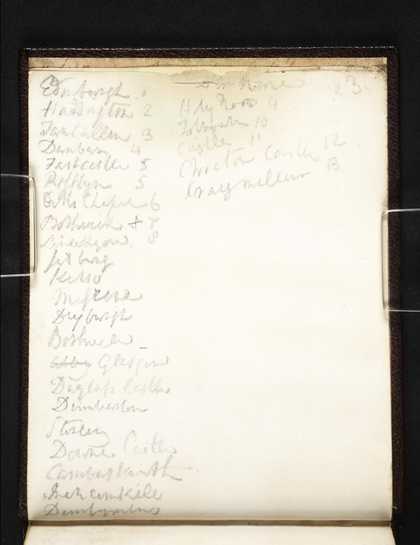 Edinburgh 1
Haddington 2
Tantallon 3
Dunbar 4
Fast Castle 5
Rosslyn 5
Chapel 6
Borthwick + 7
8
Jedburg
Kelso
Melrose
Dryburgh
Bothwell
Glasgow
Duglass Castle
Dumbarton
Sterling
Doune Castle
Cambuskenneth
3
Holy Rood 9
10
Castle 11
Crichton Castle 12
Craigmillar 13